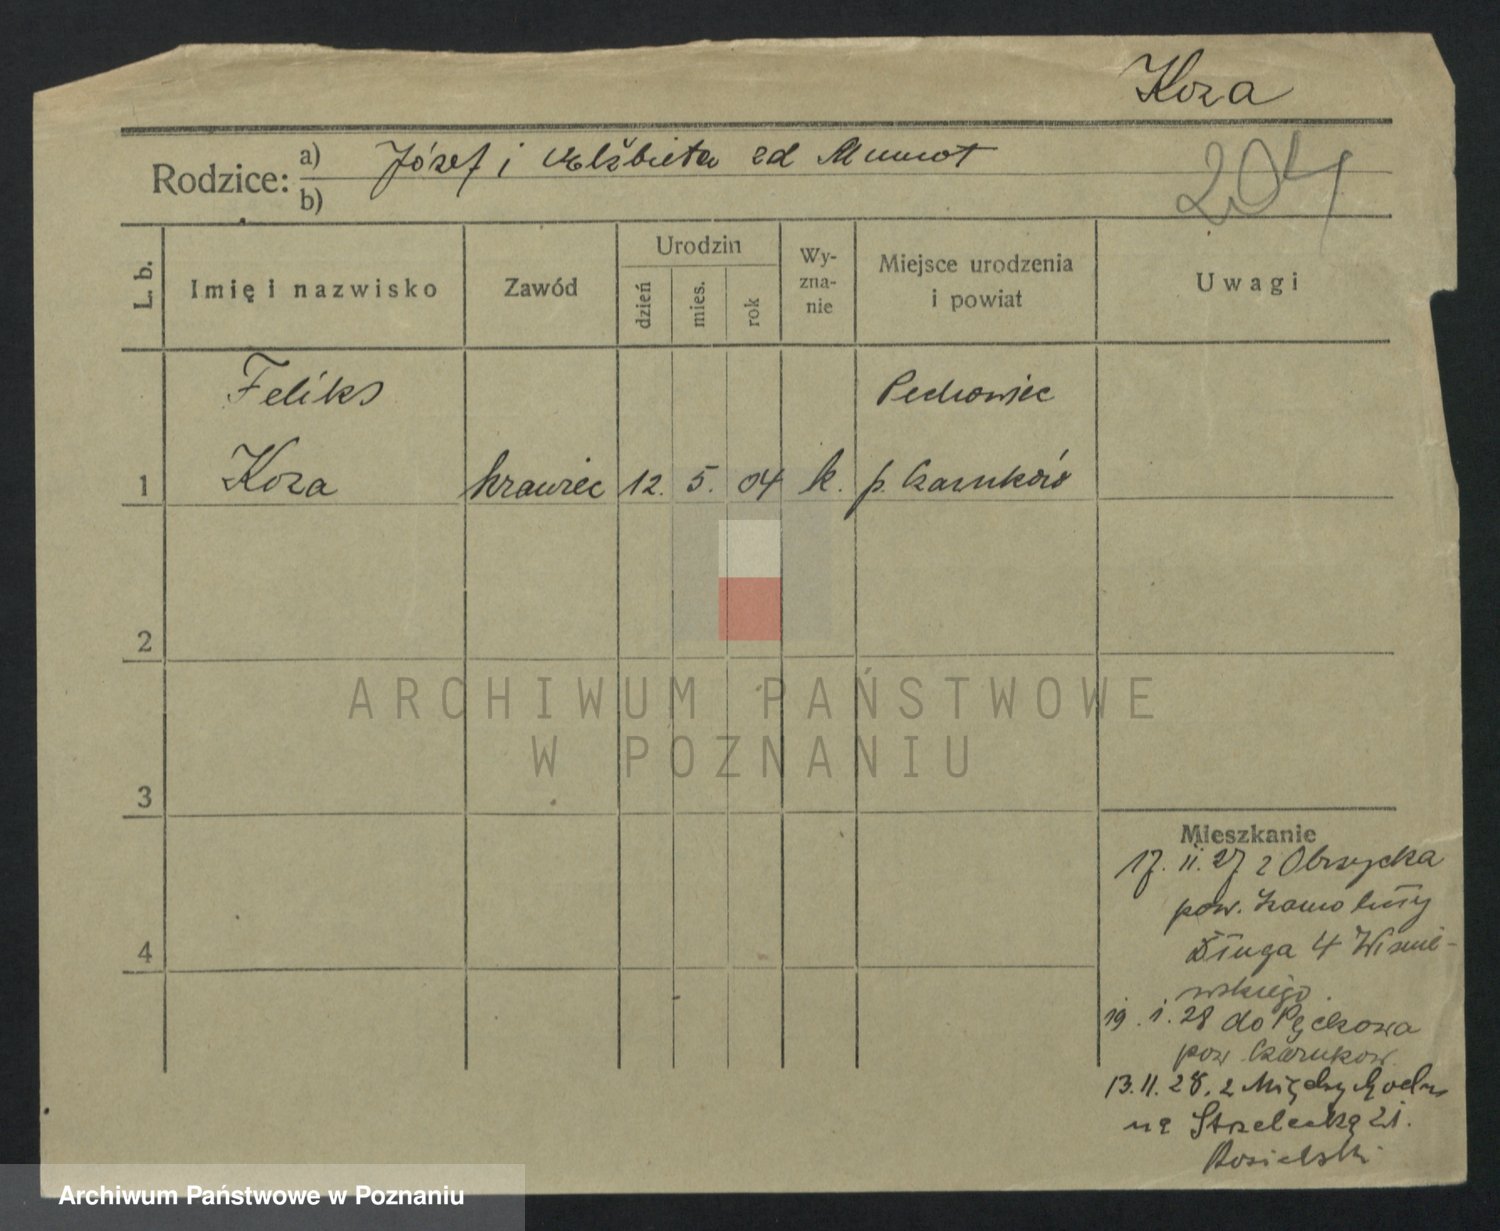 Koza
Rodzice: a) Józef i Elżbieta zd Mumot
b)
204
L. b.
Imię i nazwisko
Zawód
Urodzin
dzień
mies.
rok
Wy-
zna-
nie
Miejsce urodzenia
i powiat
Uwagi
Feliks
Pechowiec
1 Koza krawiec 12. 5. 04 k. p. Czarnków
2
3
4
ARCHIWUM PAŃSTWOWE
W POZNANIU
Mieszkanie
17. 11. 27 z Obrzycka
pow. Szamotuły
Długa 4 Wiśnie-
wskiego.
19. 1. 28 do Pęckowa
pow. Czarnkow
13. 11. 28. z Międzychodu
na Strzelecką 21.
Archiwum Państwowe w Poznaniu